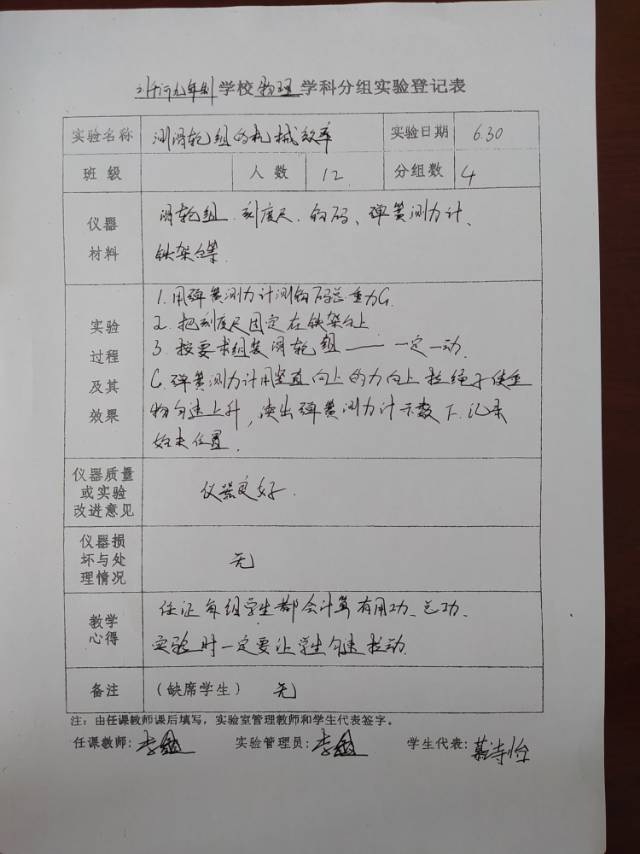 九年制学校物理学科分组实验登记表
实验名称 测滑轮组的机械效率 实验日期 6.30
班级 人数 12 分组数 4
仪器材料 滑轮组、刻度尺、钩码、弹簧测力计、
铁架台等
实验过程及其效果 1.用弹簧测力计测钩码总重力G.
2.把刻度尺固定在铁架台上
3.按要求组装滑轮组——一定一动.
C.弹簧测力计用竖直向上的力向上拉绳子使重
物匀速上升,读出弹簧测力计示数F.记录
始末位置.
仪器质量或实验改进意见 仪器良好.
仪器损坏与处理情况 无
教学心得 任证每组学生都会计算有用功、总功.
实验时一定要让学生匀速拉动.
备注 (缺席学生) 无
注:由任课教师课后填写,实验室管理教师和学生代表签字。
任课教师: 李 实验管理员: 李 学生代表: 诗怡